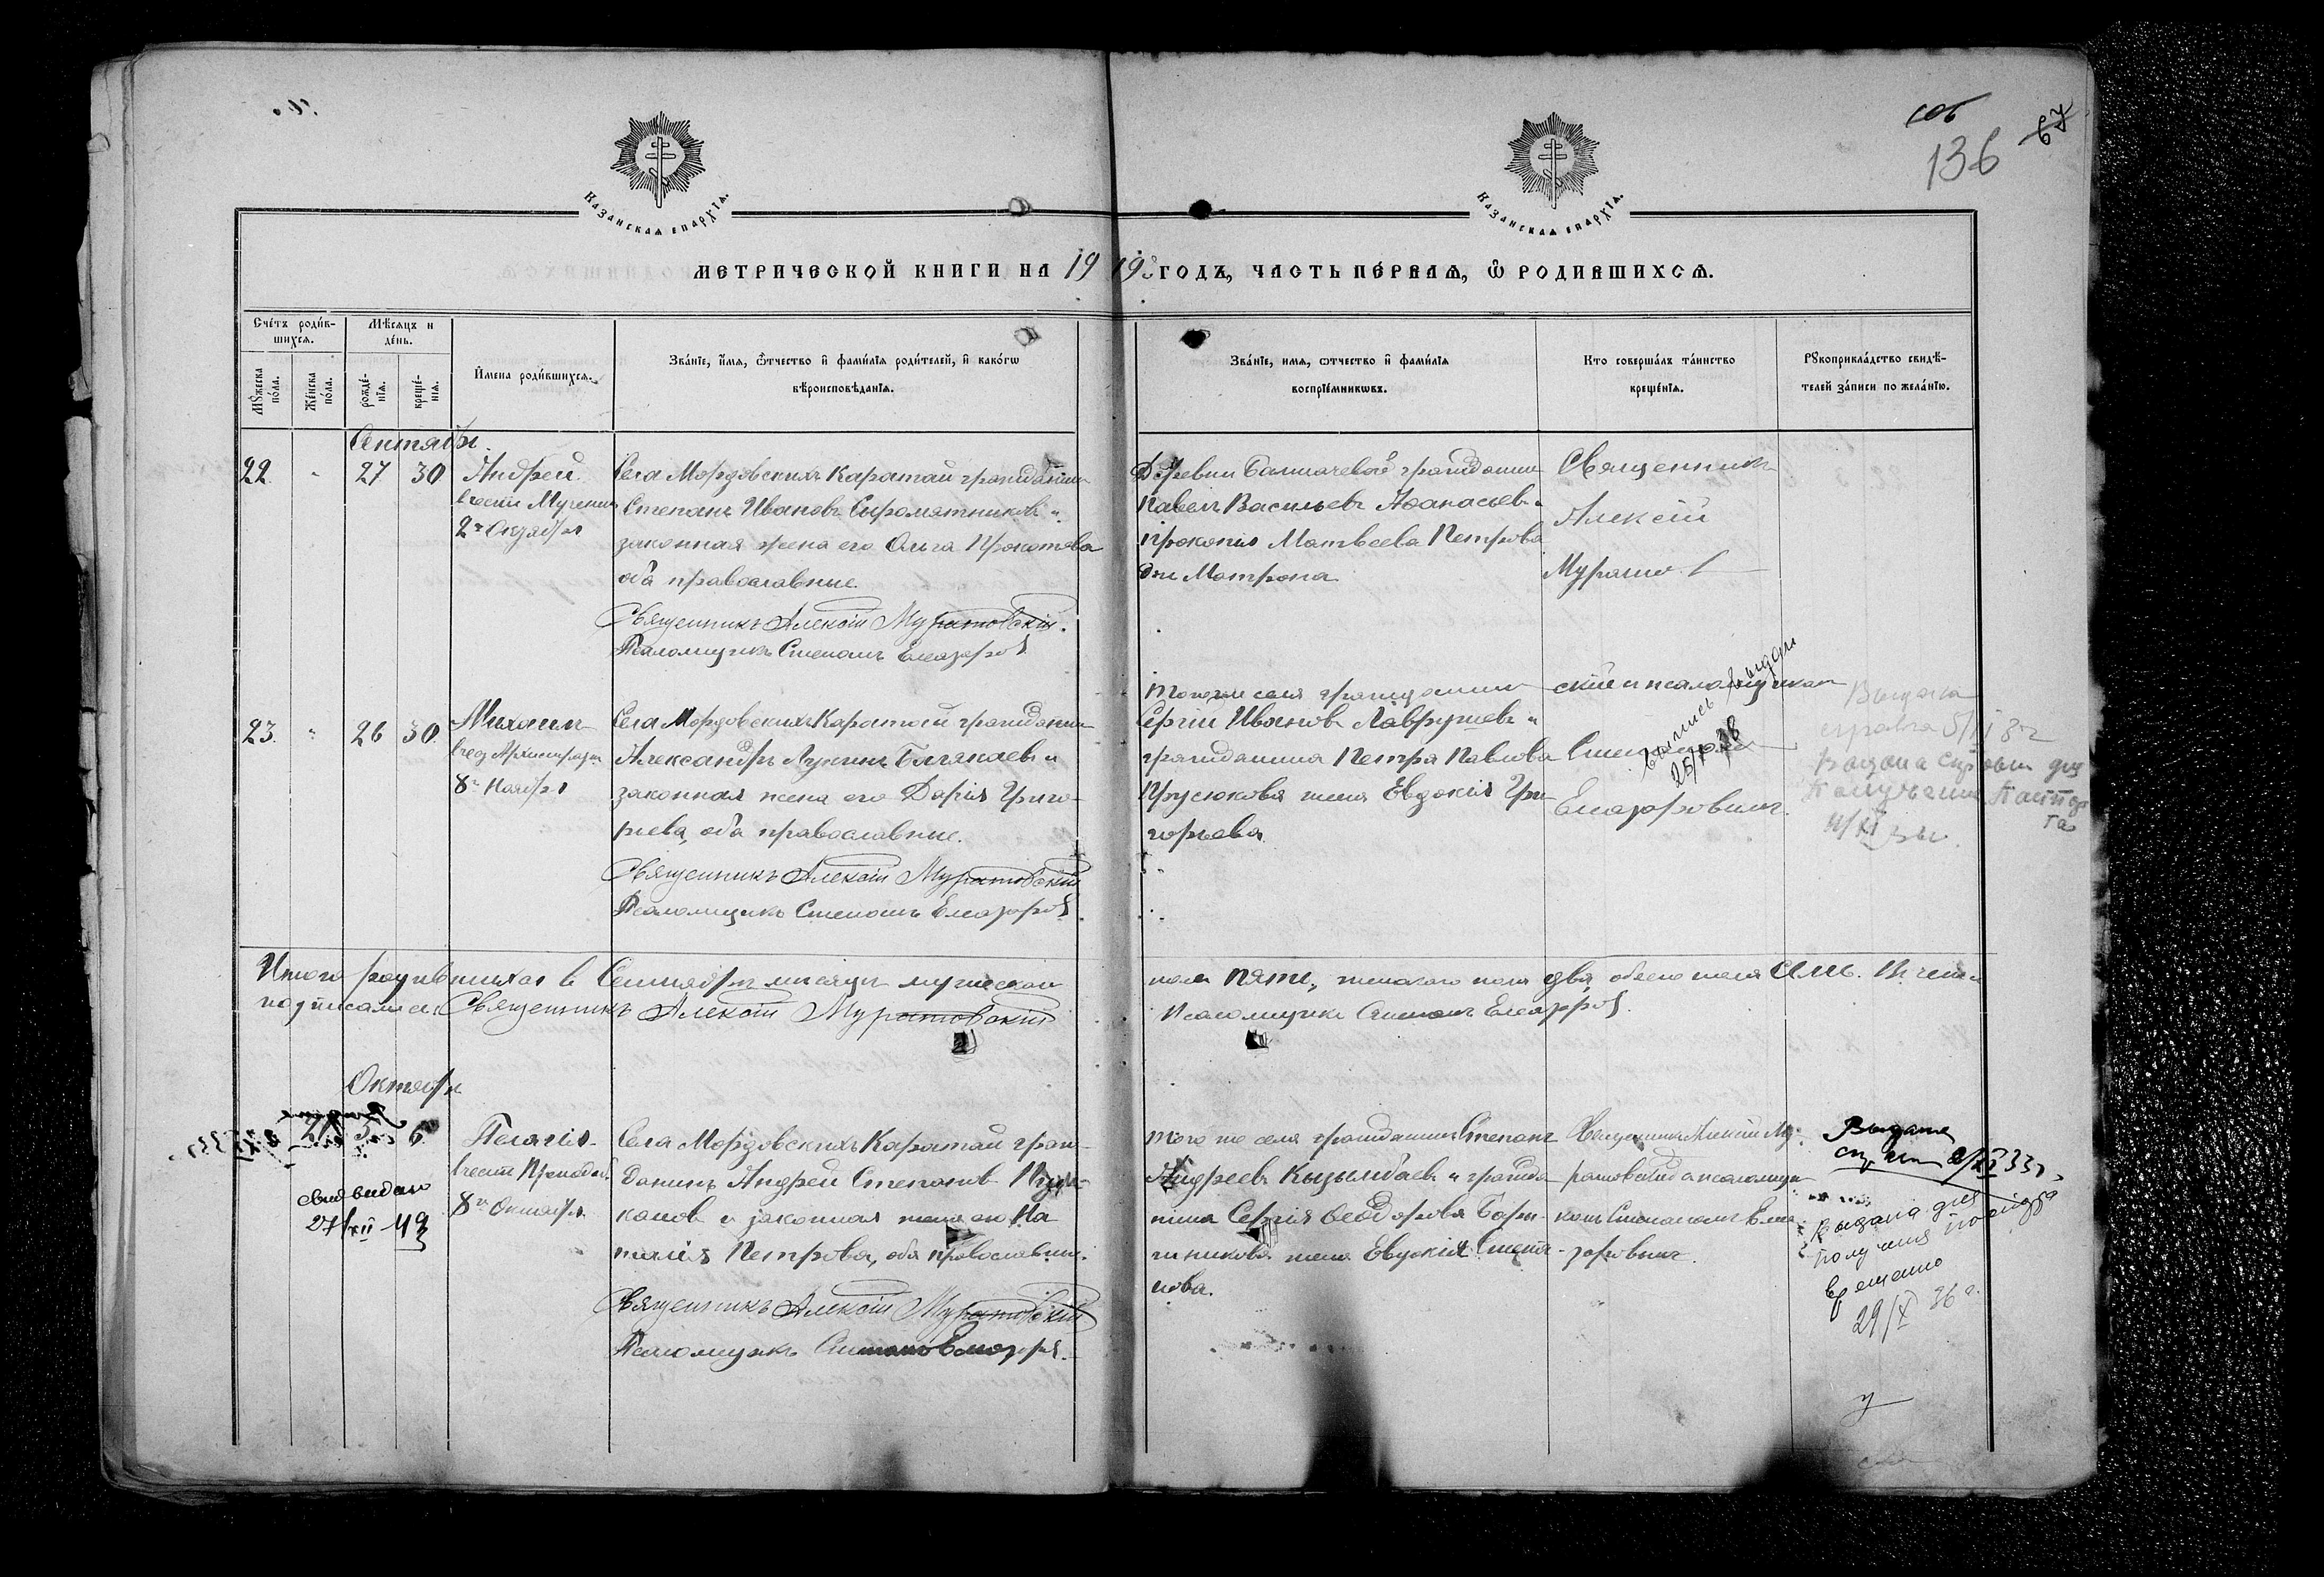 106
136
67
КАЗАНСКАѦ ЕПАРХІѦ.
КАЗАНСКАѦ ЕПАРХІѦ.
МЕТРИЧЕСКОЙ КНИГИ НА 1919 ГОДЪ, ЧАСТЬ ПЕ́РВАѦ, Ѿ РОДИВШИХСѦ.
Сче́тъ роди́в-
шихсѧ.
Мѣ́сѧцъ и
де́нь.
Мꙋ́жеска
по́ла.
Же́нска
по́ла.
рожде́-
нїѧ.
креще́-
нїѧ.
И҆мена̀ роди́вшихсѧ.
Зва́нїе, и҆́мѧ, ѻ҆́тчество и҆ фами́лїѧ роди́телей, и҆ како́гѡ
вѣроисповѣ́данїѧ.
Зва́нїе, имѧ, ѻтчество и҆ фами́лїѧ
воспрїе́мникѡвъ.
Кто соверша́лъ та́инство
креще́нїѧ.
Рꙋкоприкла́дство свидѣ́-
телей за́писи по жела́нїю.
Сентябрь
22. " 27 30 Андрей
в честь Мученика
2го Октября
Села Мордовскихъ Каратай гражданинъ
Степанъ Ивановъ Сыромятниковъ и
законная жена его Ольга Прокопьева
оба православные.
Священникъ Алексій Муратовскій.
Псаломщикъ Степанъ Елеазаров
Деревни Балтачевой гражданин
Павелъ Васильевъ Афанасьевъ и
Прокопія Матвеева Петрова
дчь Матрона
Священник
Алексій
Мурато
23. " 26 30. Михаил
в честь Архистратига
8го Ноября
Села Мордовскихъ Каратай гражданин
Александръ Лукинъ и
законная жена его Дарія Григо-
рьева, оба православные.
Священникъ Алексій Муратовскій
Псаломщикъ Степанъ Елеазаров
Того же села гражданин
Сергій Ивановъ Лаврушевъ и
гражданина Петра Павлова
жена Евдокія Гри-
горьева
ский и псаломщикъ
Степаном
Елеазаровым.
Выпись выдан
25/X 38
Выдана
справка
Выдана справка для
получения паспор
та
Итого родившихся в Сентябрь месяце мужеского
пола пять, женского пола два, обоего пола семь. В чем и
подписались: Священникъ Алексій Муратовскій
Псаломщикъ Степанъ Елеазаров.
Октябрь
5 6
свид видан
27/XII 49
Пелагія
в честь Преподоб.
8го Октября
Села Мордовскихъ Каратай граж-
данинъ Андрей Степанов
канов и законная жена его На
талія Петрова, оба православные.
Священникъ Алексій Муратовскій
Псаломщикъ Степанъ Елеазаров.
Того же села гражданинъ Степанъ
Андреевъ Кызылбаевъ и гражда
нина Сергія Феодорова
жена Евдокія Степа-
нова.
Священникъ Алексій Му-
ратовский и псаломщи
комъ Степаномъ Елеа-
заровым.
Выдана
справка 2/XI 33г
выдана для
получения паспорта
временно
29/X 36 г.